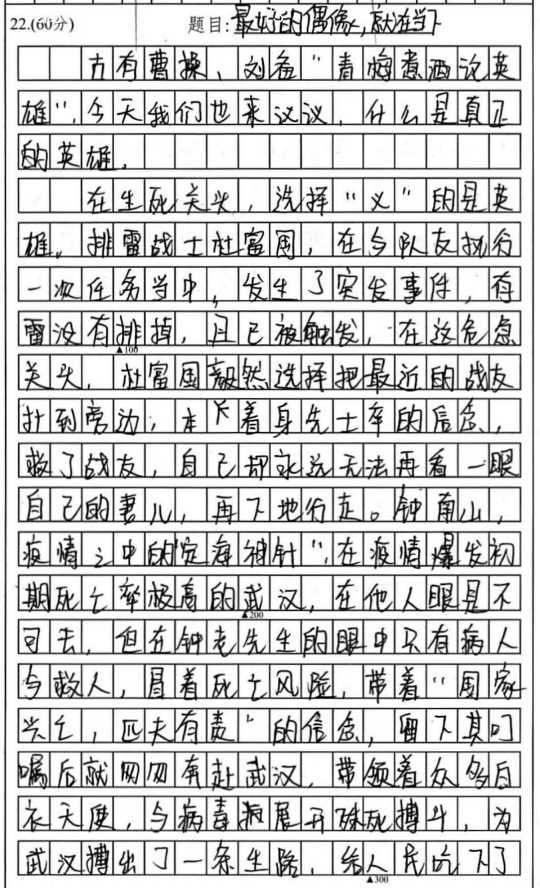 22.(60分) 题目:最好的偶像,就在当下
古有曹操、刘备“青梅煮酒论英
雄”,今天我们也来议议,什么是真正
的英雄。
在生死关头,选择“义”的是英
雄。排雷战士杜富国,在与队友执行
一次任务当中,发生了突发事件,有
雷没有排掉,且已被触发,在这危急
▲100
关头,杜富国毅然选择把最近的战友
扑到旁边,本着身先士卒的信念,
救了战友,自己却永远无法再看一眼
自己的妻儿,再下地行走。钟南山,
疫情之中的“定海神针”,在疫情爆发初
期死亡率极高的武汉,在他人眼是不
▲200
可去,但在钟老先生的眼中只有病人
与救人,冒着死亡风险,带着“国家
兴亡,匹夫有责”的信念,留下其叮
嘱后就匆匆奔赴武汉,带领着众多白
衣天使,与病毒展开殊死搏斗,为
武汉搏出了一条生路,给人民吃下了
▲300